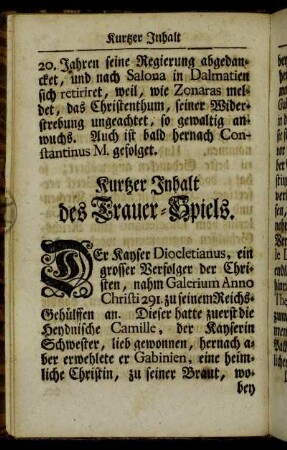 Kurtzer Inhalt
20. Jahren seine Regierung abgedan-
cket, und nach Salona in Dalmatien
sich retiriret, weil, wie Zonaras mel-
det, das Christenthum, seiner Wider-
strebung ungeachtet, so gewaltig an-
wuchs. Auch ist bald hernach Con-
stantinus M. gefolget.
Kurtzer Inhalt
des Trauer-Spiels.
DEr Kayser Diocletianus, ein
grosser Verfolger der Chri-
sten, nahm Galerium Anno
Christi 291. zu seinem Reichs-
Gehülffen an. Dieser hatte zuerst die
Heydnische Camille, der Kayserin
Schwester, lieb gewonnen, hernach a-
ber erwehlete er Gabinien, eine heim-
liche Christin, zu seiner Braut, wo-
bey